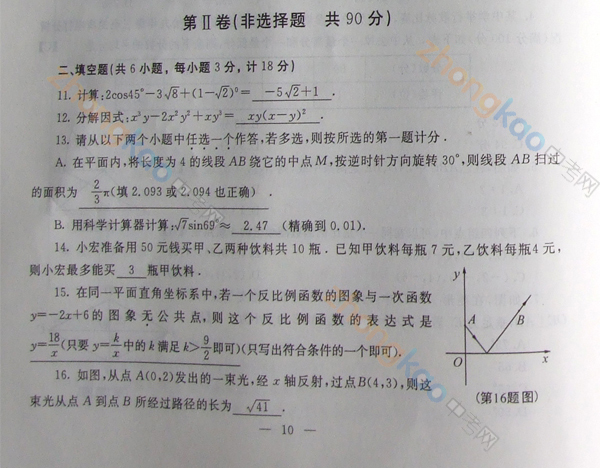 第Ⅱ卷(非选择题 共90分)
二、填空题(共6小题，每小题3分，计18分)
11. 计算:2cos45°-3√8+(1-√2)⁰= -5√2+1 .
12. 分解因式:x³y-2x²y²+xy³= xy(x-y)² .
13. 请从以下两个小题中任选一个作答，若多选，则按所选的第一题计分.
A. 在平面内，将长度为4的线段AB绕它的中点M，按逆时针方向旋转30°，则线段AB扫过
的面积为 2/3π(填2.093或2.094也正确) .
B. 用科学计算器计算:√7sin69°≈ 2.47 (精确到0.01).
14. 小宏准备用50元钱买甲、乙两种饮料共10瓶. 已知甲饮料每瓶7元，乙饮料每瓶4元，
则小宏最多能买 3 瓶甲饮料.
15. 在同一平面直角坐标系中，若一个反比例函数的图象与一次函数
y=-2x+6的图象无公共点，则这个反比例函数的表达式是
y=18/x(只要y=k/x中的k满足k>9/2即可)(只写出符合条件的一个即可).
16. 如图，从点A(0,2)发出的一束光，经x轴反射，过点B(4,3)，则这
束光从点A到点B所经过路径的长为 √41 .
y
A
B
O
x
(第16题图)
— 10 —
zhongkao中考网
zhongkao中考网